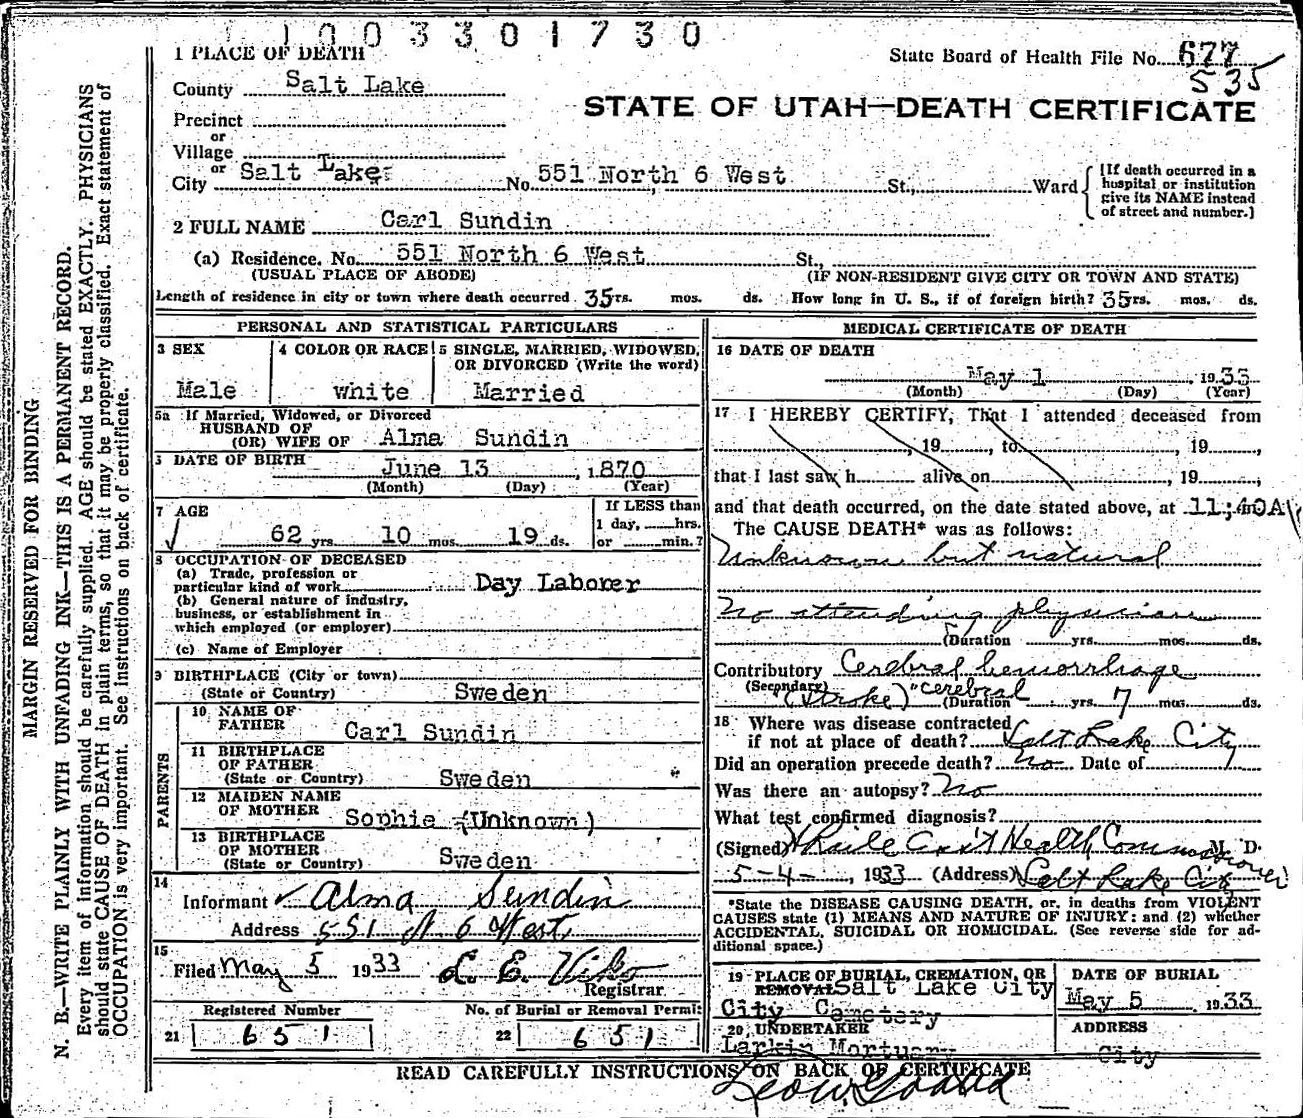 1003301730
1 PLACE OF DEATH
State Board of Health File No. 677
535
County Salt Lake
STATE OF UTAH—DEATH CERTIFICATE
Precinct
or
Village
or
City Salt Lake No. 551 North 6 West St., Ward
[If death occurred in a hospital or institution give its NAME instead of street and number.]
2 FULL NAME Carl Sundin
(a) Residence. No. 551 North 6 West St.,
(USUAL PLACE OF ABODE) (IF NON-RESIDENT GIVE CITY OR TOWN AND STATE)
Length of residence in city or town where death occurred 35 rs. mos. ds. How long in U. S., if of foreign birth? 35 rs. mos. ds.
PERSONAL AND STATISTICAL PARTICULARS
3 SEX
Male
4 COLOR OR RACE
White
5 SINGLE, MARRIED, WIDOWED, OR DIVORCED (Write the word)
Married
5a If Married, Widowed, or Divorced
HUSBAND OF
(OR) WIFE OF Alma Sundin
DATE OF BIRTH June 13, 1870
(Month) (Day) (Year)
7 AGE
62 yrs. 10 mos. 19 ds.
If LESS than
1 day, hrs.
or min.?
8 OCCUPATION OF DECEASED
(a) Trade, profession or
particular kind of work Day Laborer
(b) General nature of industry,
business, or establishment in
which employed (or employer)
(c) Name of Employer
9 BIRTHPLACE (City or town)
(State or Country) Sweden
PARENTS
10 NAME OF
FATHER Carl Sundin
11 BIRTHPLACE
OF FATHER
(State or Country) Sweden
12 MAIDEN NAME
OF MOTHER Sophie (Unknown)
13 BIRTHPLACE
OF MOTHER
(State or Country) Sweden
14
Informant Alma Sundin
Address 551 N. 6 West.
15
Filed May 5 1933 L. E. Viko
Registrar
Registered Number
21 651
No. of Burial or Removal Permit
22 651
MEDICAL CERTIFICATE OF DEATH
16 DATE OF DEATH
May 1, 1933
(Month) (Day) (Year)
17 I HEREBY CERTIFY, That I attended deceased from
, 19 , to , 19 ,
that I last saw h alive on , 19 ,
and that death occurred, on the date stated above, at 11;40A m
The CAUSE DEATH* was as follows:
Unknown but natural
No attending physician
(Duration yrs. mos. ds.
Contributory Cerebral hemorrhage
(Secondary) (Stroke) "cerebral
(Duration yrs. 7 mos. ds.
18 Where was disease contracted
if not at place of death? Salt Lake City
Did an operation precede death? No Date of
Was there an autopsy? No
What test confirmed diagnosis?
(Signed) Health Commissioner M. D.
5-4-, 1933 (Address) Salt Lake City
*State the DISEASE CAUSING DEATH, or, in deaths from VIOLENT
CAUSES state (1) MEANS AND NATURE OF INJURY: and (2) whether
ACCIDENTAL, SUICIDAL OR HOMICIDAL. (See reverse side for ad-
ditional space.)
19 PLACE OF BURIAL, CREMATION, OR
REMOVAL Salt Lake City
City Cemetery
DATE OF BURIAL
May 5 1933
20 UNDERTAKER
Larkin Mortuary
ADDRESS
City
READ CAREFULLY INSTRUCTIONS ON BACK OF CERTIFICATE
MARGIN RESERVED FOR BINDING
N. B.—WRITE PLAINLY WITH UNFADING INK—THIS IS A PERMANENT RECORD.
Every item of information should be carefully supplied. AGE should be stated EXACTLY. PHYSICIANS
should state CAUSE OF DEATH in plain terms, so that it may be properly classified. Exact statement of
OCCUPATION is very important. See instructions on back of certificate.